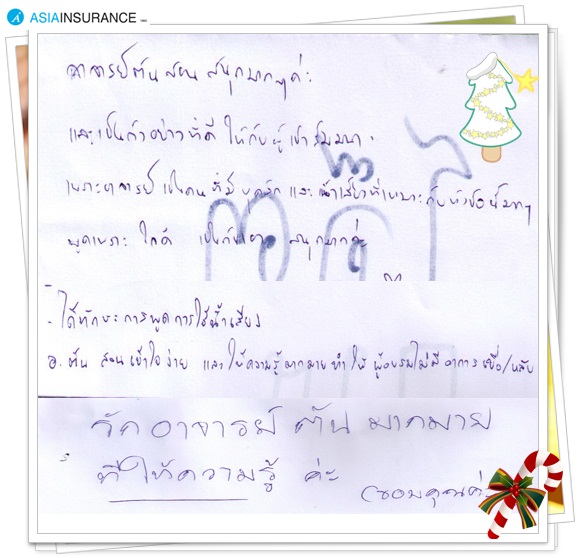 ASIAINSURANCE
อาจารย์ต้นสอน สนุกมากๆค่ะ
และเป็นตัวอย่างที่ดี ให้กับผู้เข้าสัมมนา.
เพราะอาจารย์ เป็นคนที่มีบุคลิก และน้ำเสียงที่เหมาะกับหัวข้อนี้มากๆ
พูดเพราะ ใจดี เป็นกันเอง สนุกมากค่ะ
- ได้ทักษะการพูด การใช้น้ำเสียง
อ. ต้น สอนเข้าใจง่าย และให้ความรู้มากมาย ทำให้ ผู้อบรมไม่มีอาการเบื่อ/หลับ
รัก อาจารย์ ต้น มากมาย
ที่ให้ความรู้ ค่ะ
ขอบคุณค่ะ